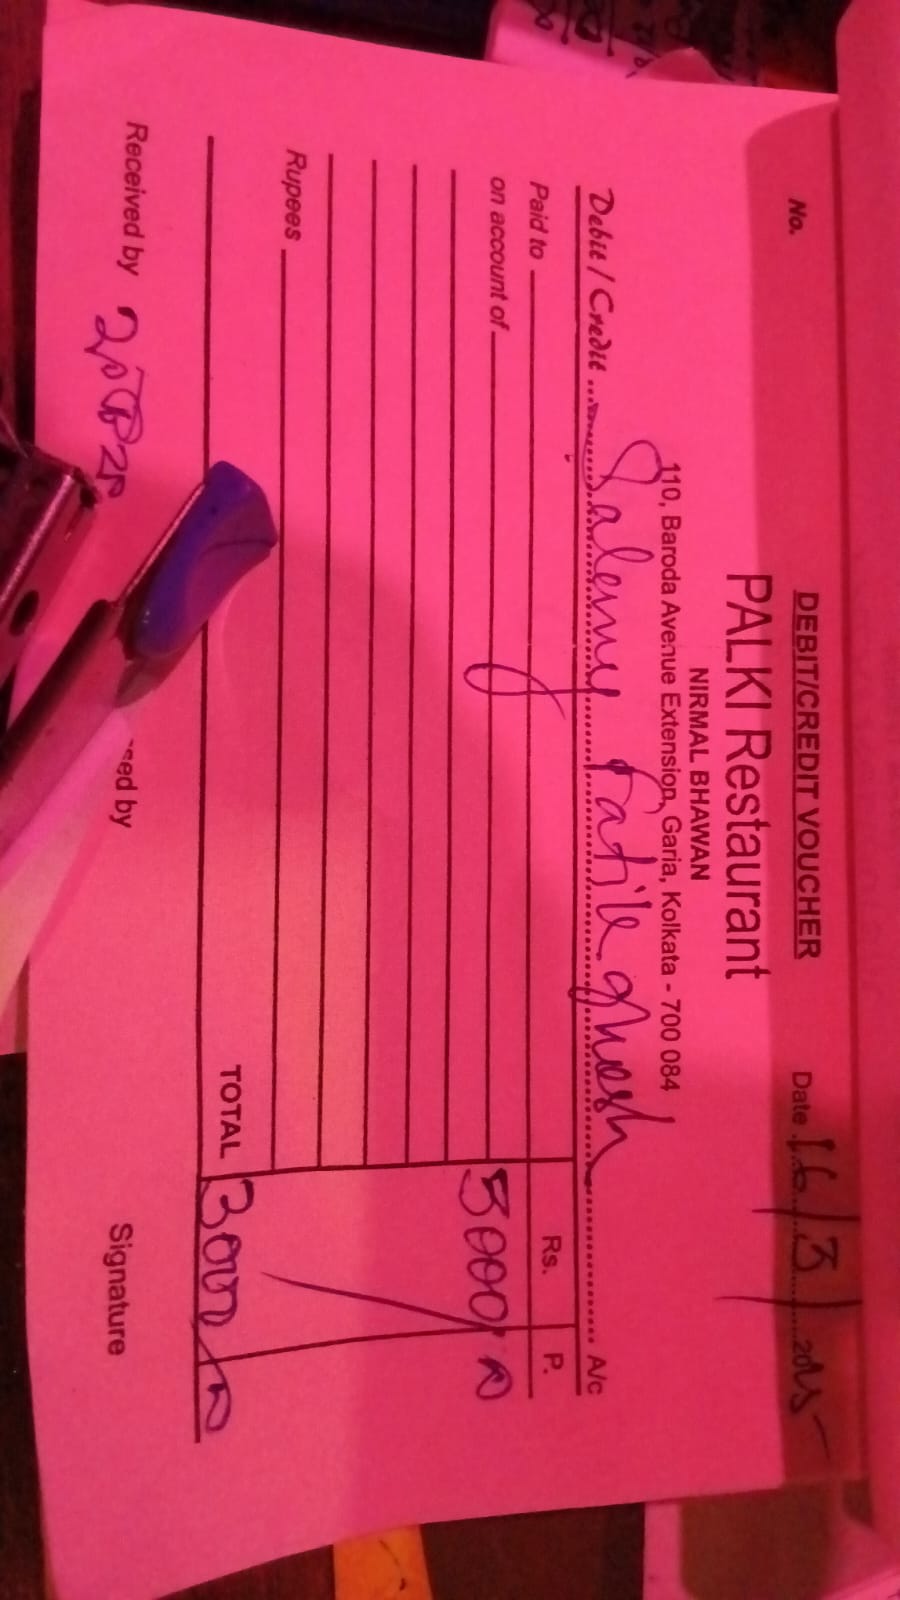 DEBIT/CREDIT VOUCHER
No. Date 16/3/2025
PALKI Restaurant
NIRMAL BHAWAN
110, Baroda Avenue Extension, Garia, Kolkata - 700 084
Debit / Credit Salemy Fatik ghosh A/c
Paid to Rs. P.
on account of 3000
Rupees TOTAL 3000
Received by sed by Signature